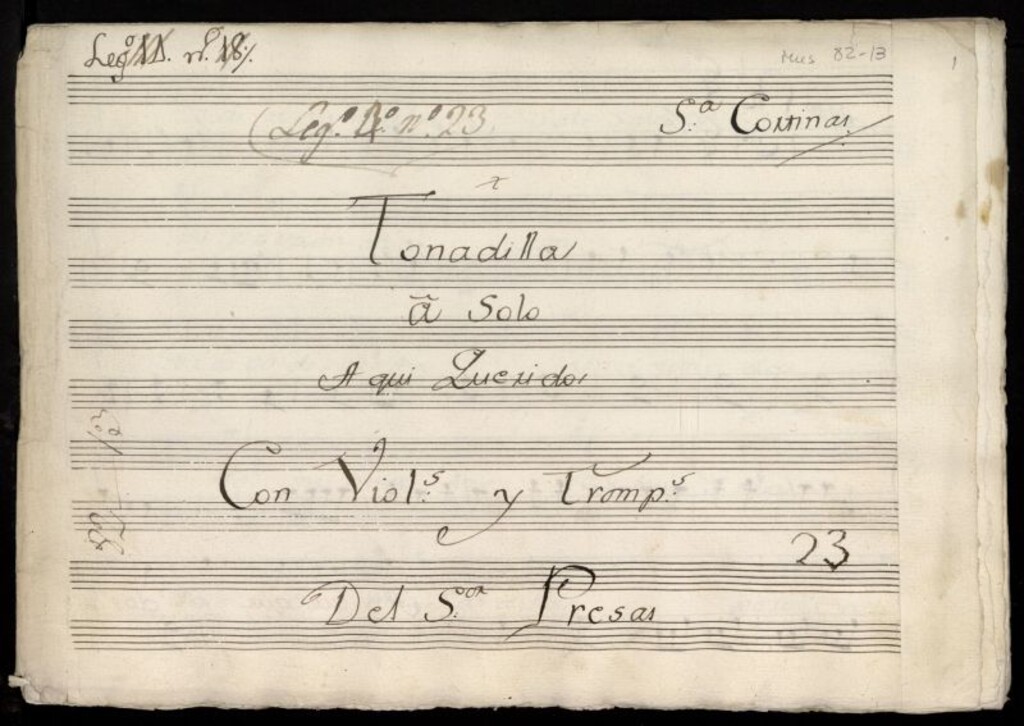 Legº 11. nº. 18.
Mus 82-13
1
Legº. 4º nº. 23.
S.ª Cortinas
Tonadilla
ã Solo
Aqui Queridos
Con Viol.ˢ y Tromp.ˢ
23
Del S.ᵒʳ Presas